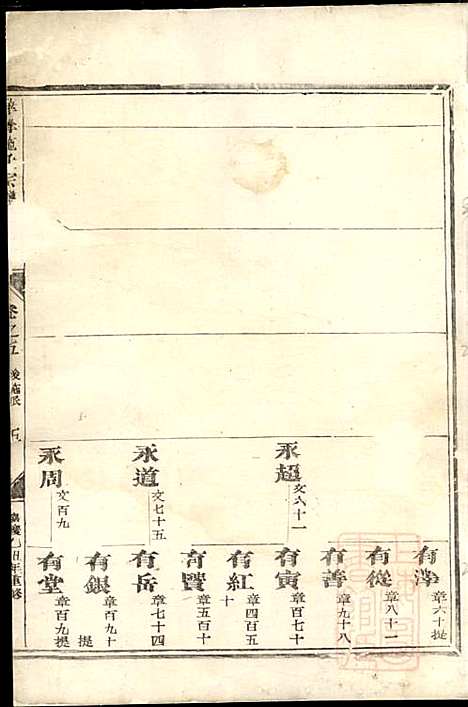 永超
文八十一
永道
文七十五
永周
文百九
有澤
章六十提
有從
章八十一
有善
章九十八
有寅
章百七十
有紅
章四百五十
有豐
章五百十
有岳
章七十四
有銀
章百九十提
有堂
章百九提
卷之五
後施派
嘉慶乙丑年重修